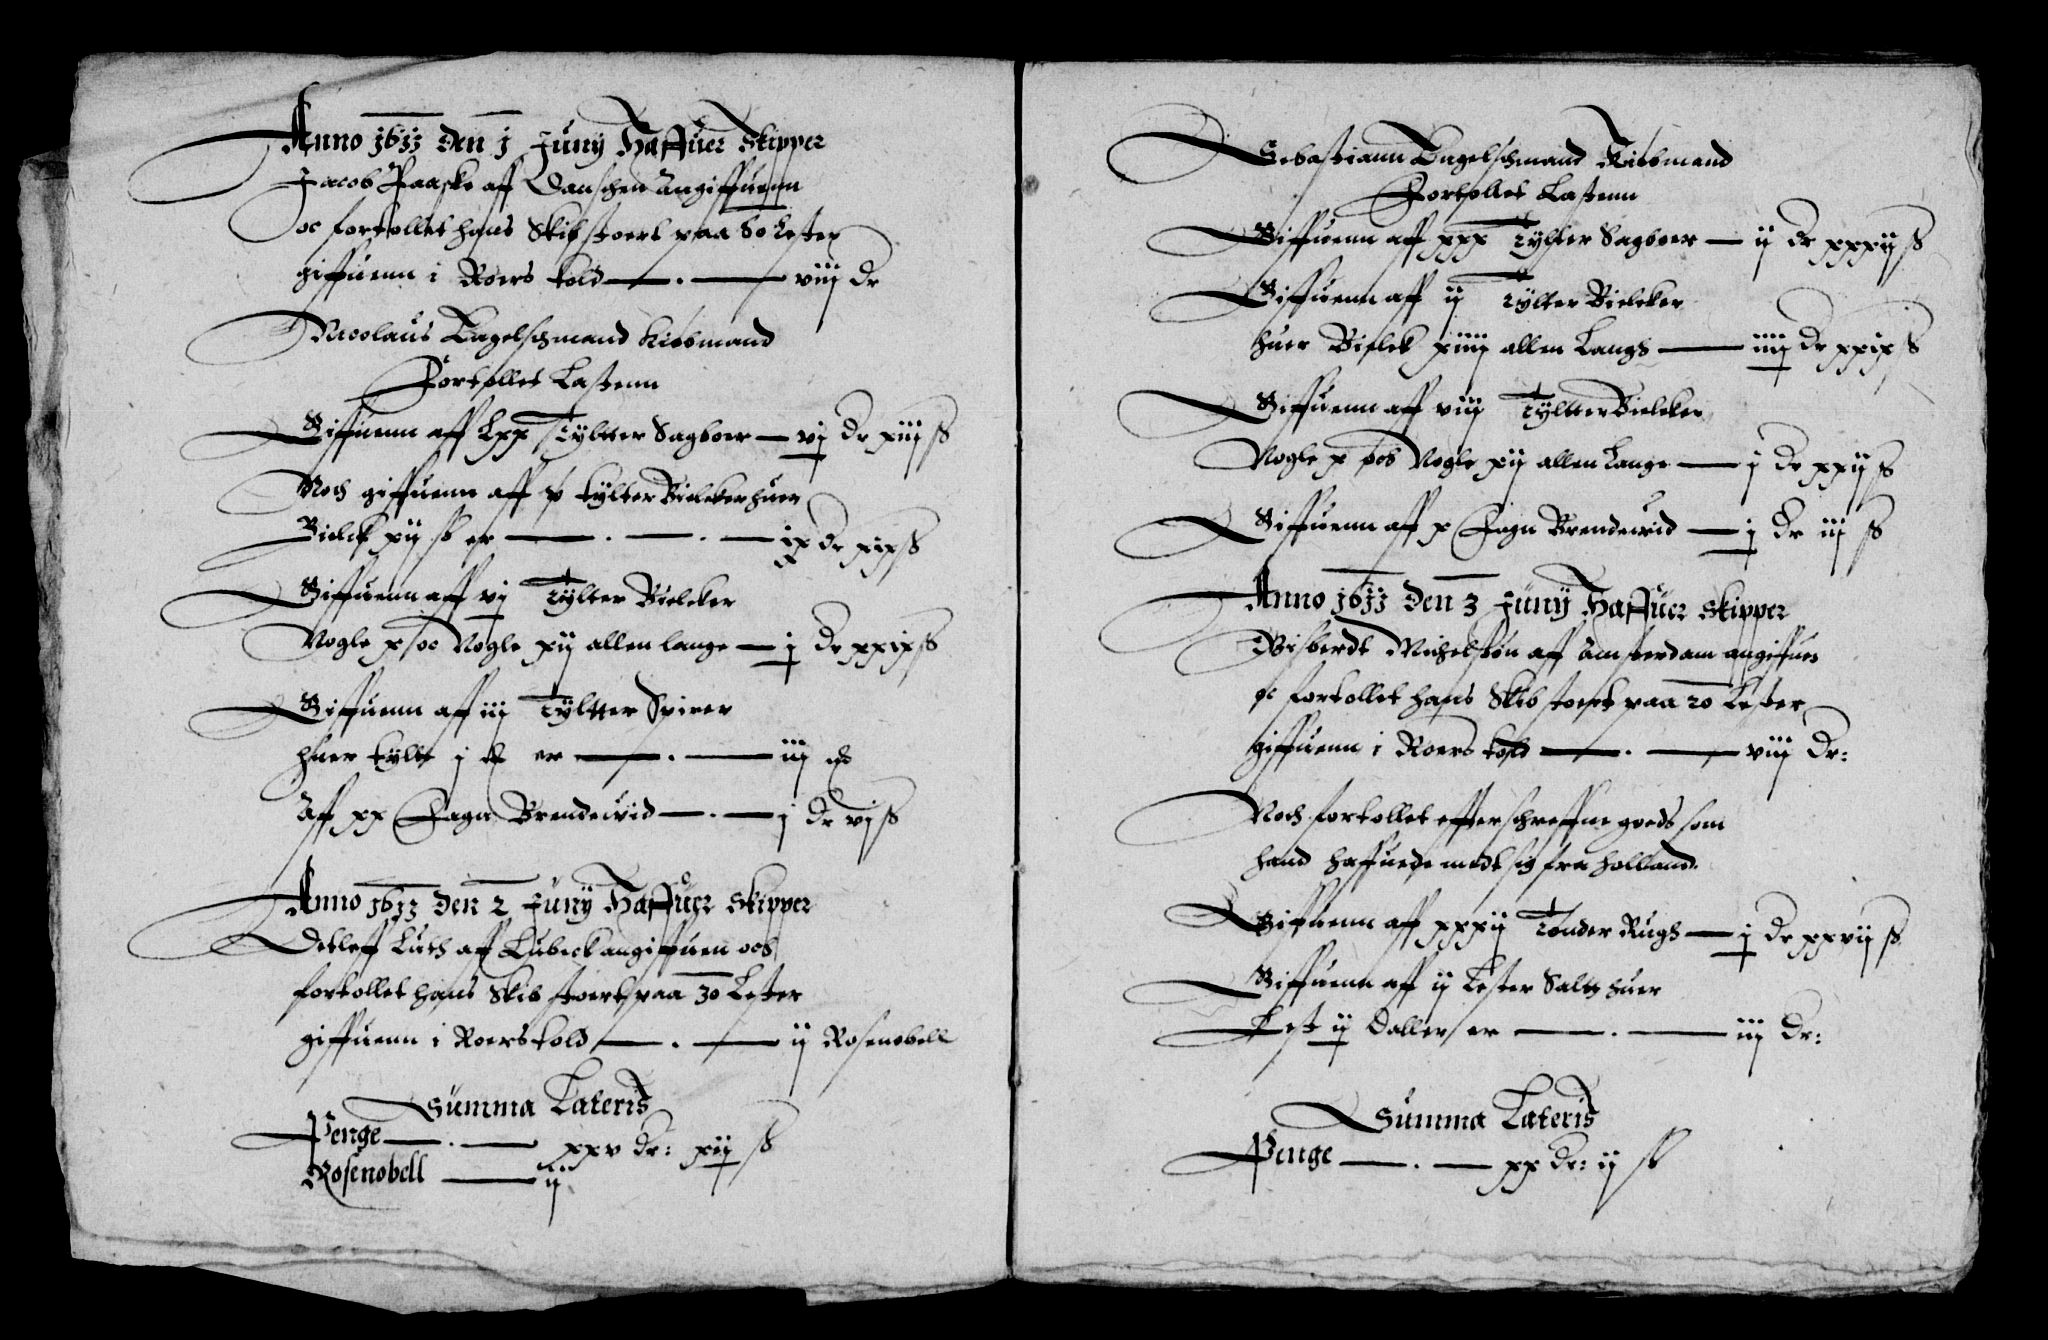 Anno 1611 Den 1 Juny Haffuer Skipper
Jacob Paaske aff Danschen Angiffuenn
oc fortollet hans Skib stoert paa 60 Lester
giffuenn i Roers told — . — viij Dr
Nicolaus Engelschmand Kiøbmand
Fortollet Lastenn
Giffuenn aff Lxx Tyltter Sagboer — vj Dr xiiij ß
Noch giffuenn aff x tylter Bielcker huer
Bielck xij ß er — . — . — ix Dr xix ß
Giffuenn aff vj Tylter Bielcker
Nogle x oc Nogle xij allen lange — j Dr xxix ß
Giffuenn aff iij Tyltter Spirer
huer tylt j er — . — iij
Aff xx Fagn Brendeuid — . — j Dr vj ß
Anno 1611 Den 2 Juny Haffuer Skipper
Detleff Luth aff Lubeck angiffuen och
fortollet hans Skib stoert paa 30 Lester
giffuenn i Roers told — . — ij Rosenobell
Summa Lateris
Penge — . — xxv Dr: xij ß
Rosenobell — ij
Sebastiann Engelschmand Kiøbmand
Fortollet Lastenn
Giffuenn aff xxx Tylter Sagboer — ij Dr xxxij ß
Giffuenn aff ij Tylter Bielcker
huer Bielck xiiij allen Langh — iiij Dr xxix ß
Giffuenn aff viij Tyltter Bielcker
Nogle x och Nogle xij allen Lange — j Dr xxij ß
Giffuenn aff x Fagn Brendeuid — j Dr iij ß
Anno 1611 Den 3 Juny Haffuer Skipper
Gisberdt Michelsøn aff Amsterdam angiffuen
oc fortollet hans Skib stoert paa 20 Lester
giffuenn i Roers told — . — viij Dr:
Noch fortollet effterschreffne goeds som
hand haffuede medt sig fra Holland.
Giffuenn aff xxxij Tønder Rugh — j Dr xxvij ß
Giffuenn aff ij Lester Salt huer
Lest ij Daller er — . — iiij Dr:
Summa Lateris
Penge — . — xx Dr: ij ß